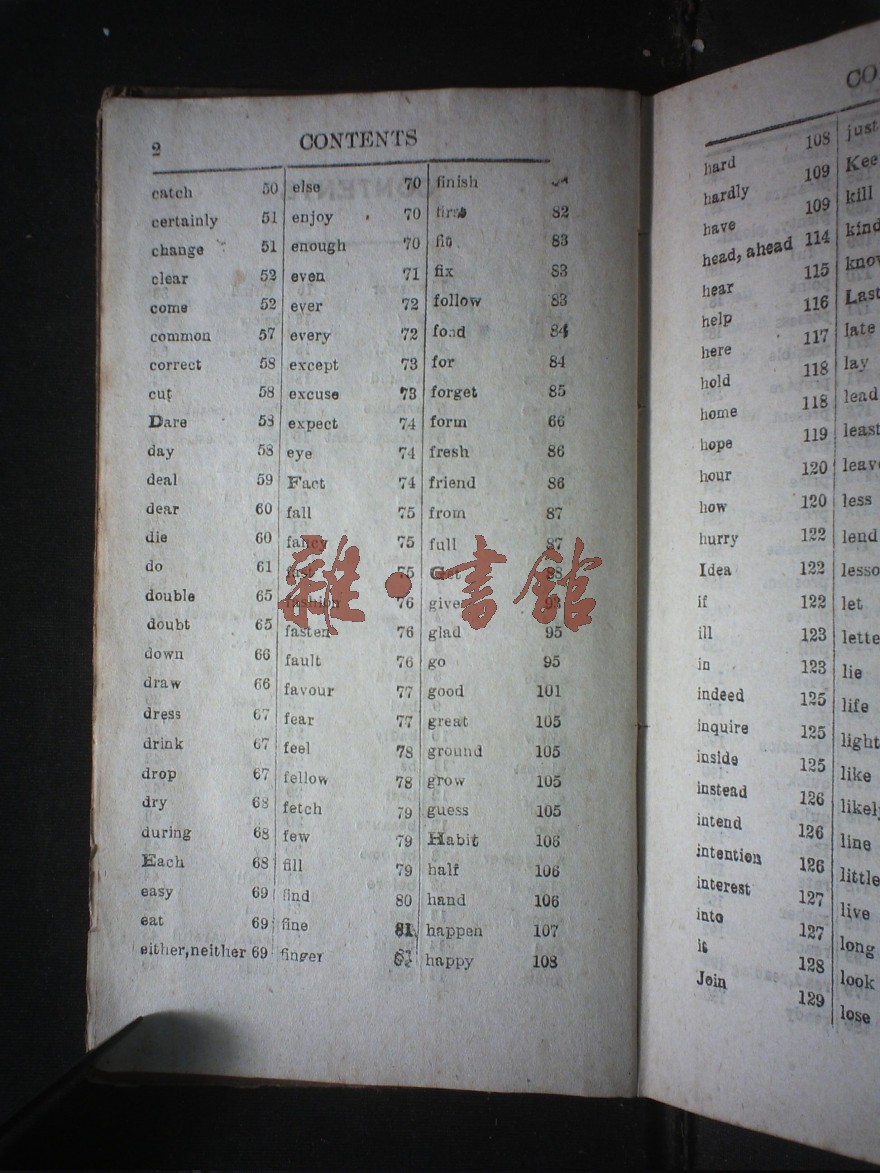 2 CONTENTS
catch 50
certainly 51
change 51
clear 52
come 52
common 57
correct 58
cut 58
Dare 58
day 58
deal 59
dear 60
die 60
do 61
double 65
doubt 65
down 66
draw 66
dress 67
drink 67
drop 67
dry 68
during 68
Each 68
easy 69
eat 69
either,neither 69
else 70
enjoy 70
enough 70
even 71
ever 72
every 72
except 73
excuse 73
expect 74
eye 74
Fact 74
fall 75
fancy 75
fast 75
fashion 76
fasten 76
fault 76
favour 77
fear 77
feel 78
fellow 78
fetch 79
few 79
fill 79
find 80
fine 81
finger
finish
first 82
83
fix 83
follow 83
fond 84
for 84
forget 85
form 66
fresh 86
friend 86
from 87
full 87
Get 88
give 93
glad 95
go 95
good 101
great 105
ground 105
grow 105
guess 105
Habit 106
half 106
hand 106
happen 107
happy 108
CO
hard 108
hardly 109
have 109
head, ahead 114
hear 115
help 116
here 117
hold 118
home 118
hope 119
hour 120
how 120
hurry 122
Idea 122
if 122
ill 123
in 123
indeed 125
inquire 125
inside 125
instead 126
intend 126
intention 126
interest 127
into 127
it 128
Join 129
just
Kee
kill
kind
know
Last
late
lay
lead
least
leave
less
lend
lesso
let
lette
lie
life
light
like
likely
line
little
live
long
look
lose
雜·書館